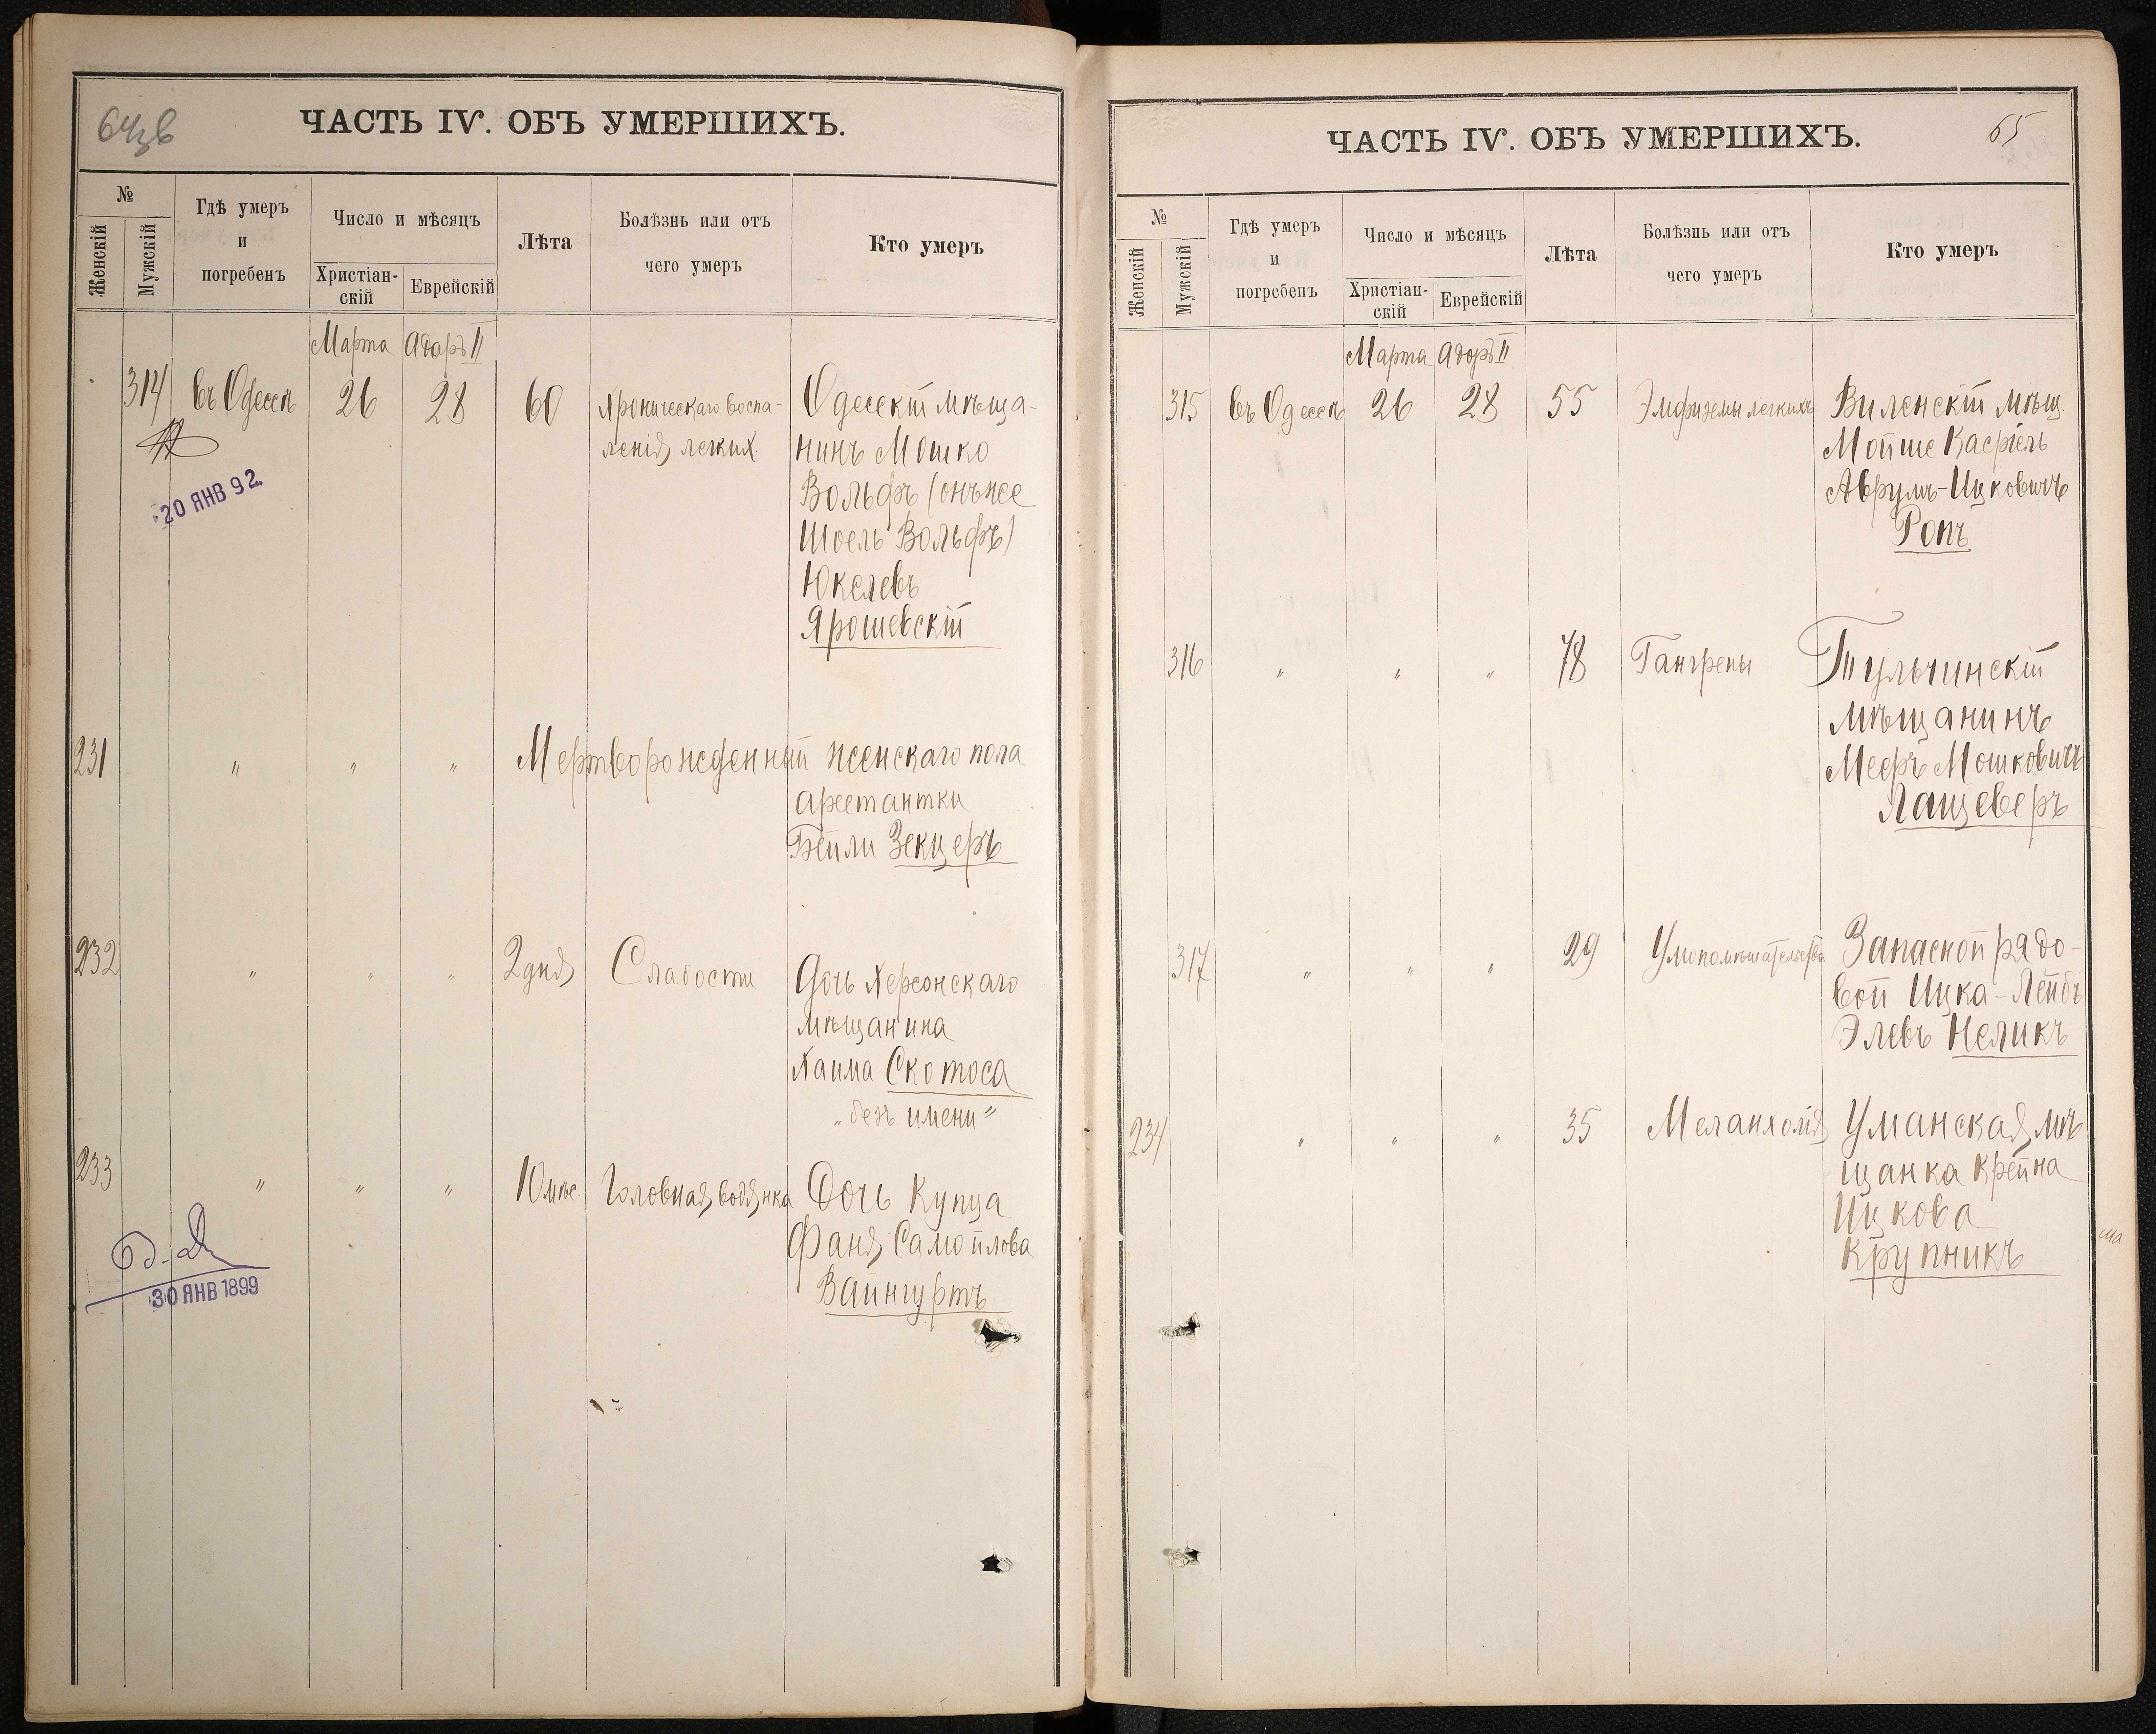 ЧАСТЬ IV. ОБЪ УМЕРШИХЪ.
№
Женскій
Мужскій
Гдѣ умеръ
и
погребенъ
Число и мѣсяцъ
Христіан-
скій
Еврейскій
Лѣта
Болѣзнь или отъ
чего умеръ
Кто умеръ
Марта Адаръ II
314 въ Одессѣ 26 28 60 Хроническаго воспа- Одесскій мѣща-
ленія легких. нинъ Мошко
Вольфъ (онъ же
Шоель Вольфъ)
Юкелевъ
Ярошевскій
20 ЯНВ 92.
231 " " " Мертворожденный женскаго пола
арестантки
Бейли Зекцеръ
232 " " " 2 дня Слабости Дочь Херсонскаго
мѣщанина
Хаима Скотоса
"безъ имени"
233 " " " 10 мѣс Головная водянка Дочь Купца
Фаня Самойлова
Вайнгуртъ
30 ЯНВ 1899
ЧАСТЬ IV. ОБЪ УМЕРШИХЪ.
65
№
Женскій
Мужскій
Гдѣ умеръ
и
погребенъ
Число и мѣсяцъ
Христіан-
скій
Еврейскій
Лѣта
Болѣзнь или отъ
чего умеръ
Кто умеръ
Марта Адоръ II
315 въ Одессѣ 26 28 55 Эмфиземы легкихъ Виленскій мѣщ.
Мойше Касріель
Аврумъ-Ицковичъ
Ропъ
316 " " " 78 Гангрены Тульчинскій
мѣщанинъ
Мееръ Мошковичъ
Лащеверъ
317 " " " 29 Умопомѣшательства Запасной рядо-
вой Ицка-Лейбъ
Элевъ Неликъ
234 " " " 35 Меланхолія Уманская мѣ
щанка Крейна
Ицкова
Крупникъ